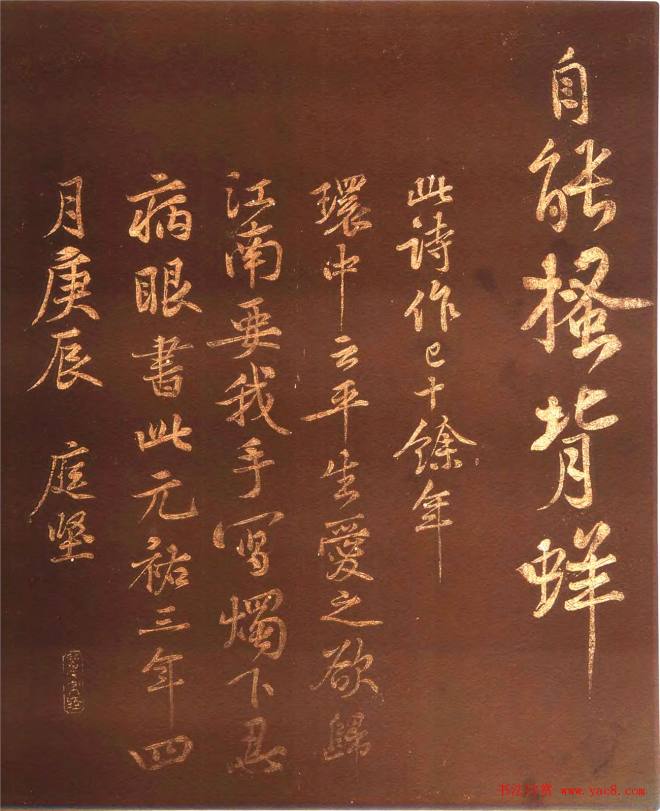 自能搔背蛘
此詩作已十餘年
環中云平生愛之欲歸
江南要我手寫燭下
病眼書此元祐三年四
月庚辰 庭堅
www.yac8.com